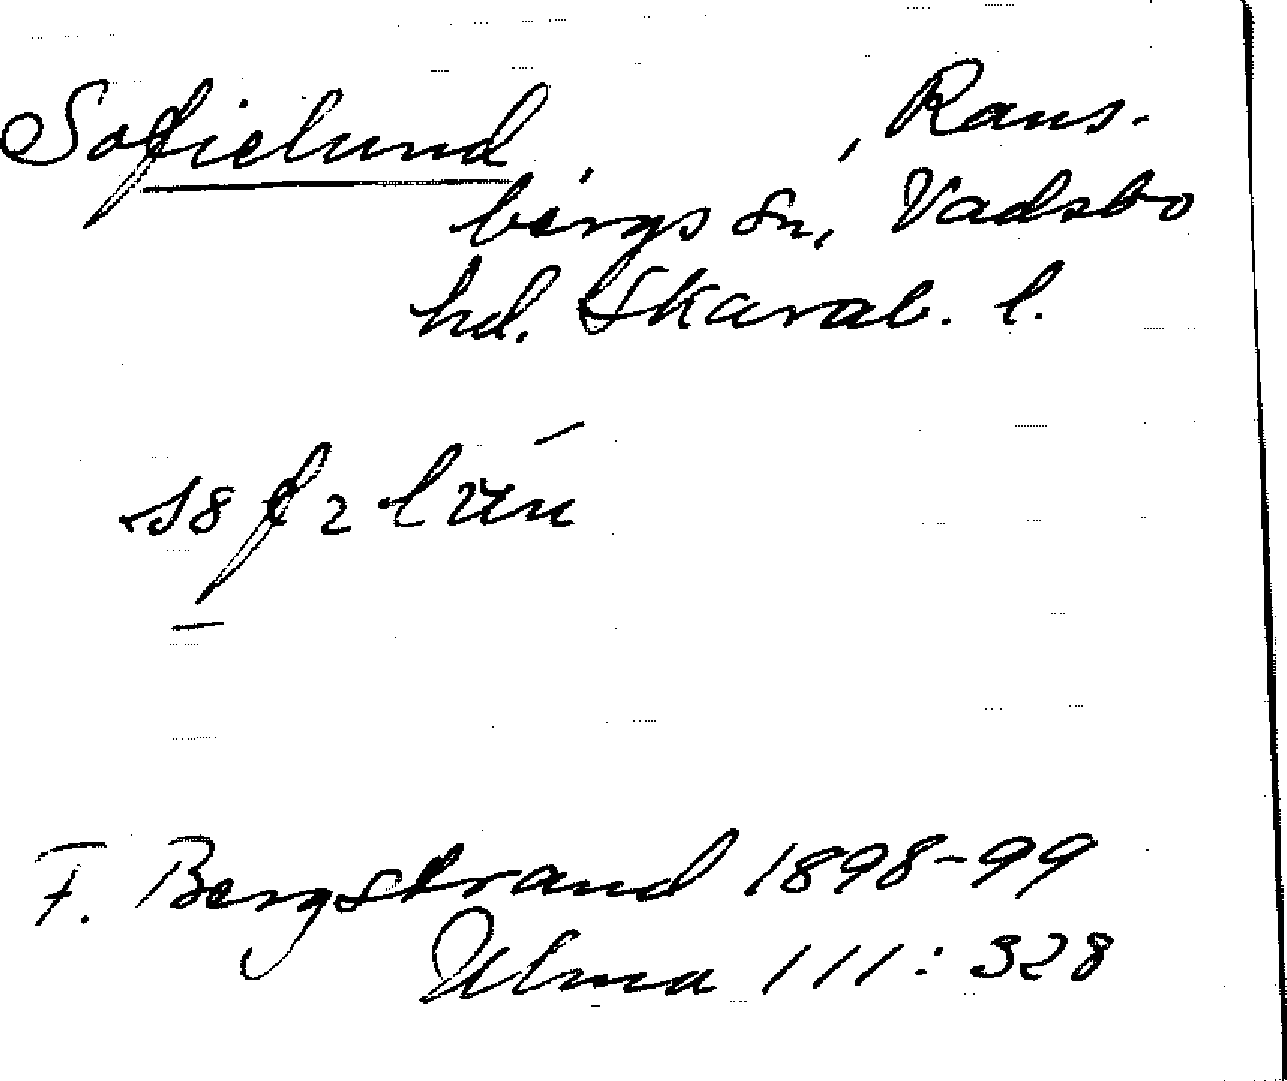 Sofielund, Rans-
bergs sn, Vadsbo
hd. Skarab. l.
F. Bergstrand 1898-99
Ulma 111:328